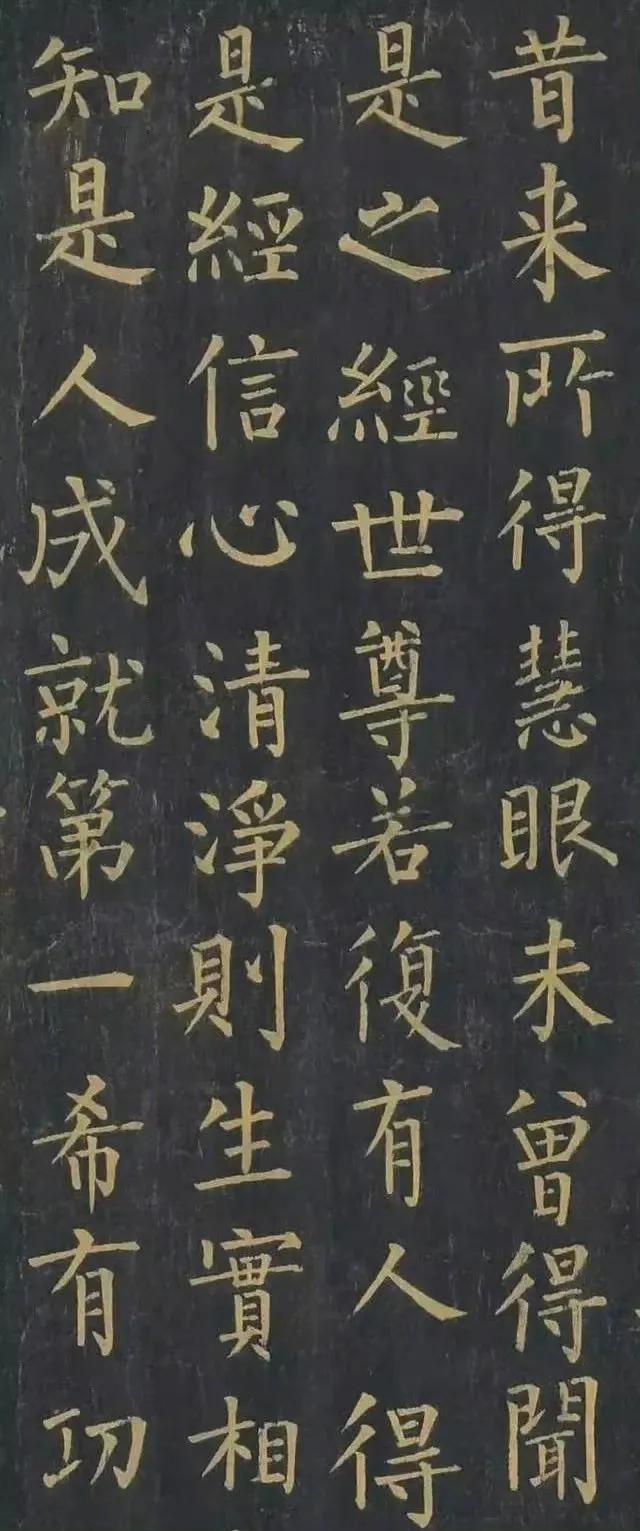 昔来所得慧眼未曾得聞
是之經世尊若復有人得
是經信心清淨則生實相
知是人成就第一希有功